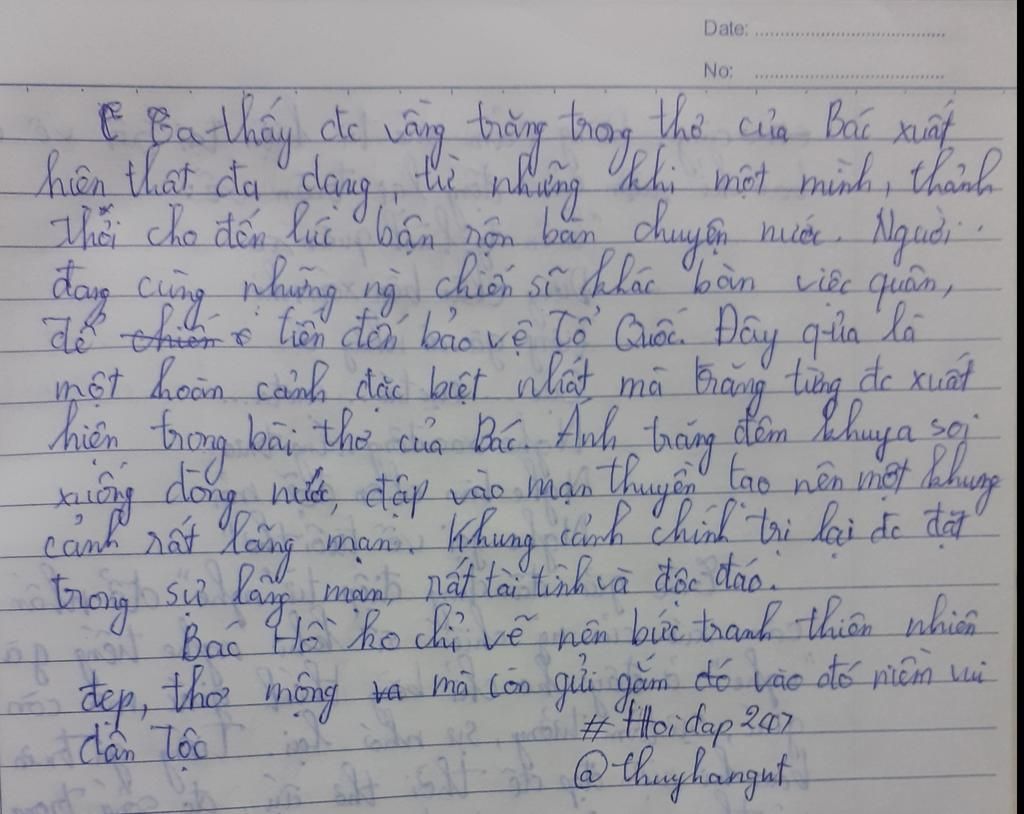 Date: ..........
No: ..........
Ta thấy đc vầng trăng trong thơ của Bác xuất
hiện thật đa dạng, từ những khi một mình, thảnh
thơi cho đến lúc bận rộn bàn chuyện nước. Người
đang cùng những ng chiến sĩ khác bàn việc quân,
để chiến tiến đến bảo vệ Tổ Quốc. Đây qủa là
một hoàn cảnh đặc biệt nhất mà trăng từng đc xuất
hiện trong bài thơ của Bác. Ánh trăng đêm khuya soi
xuống dòng nước, đập vào mạn thuyền tạo nên một khung
cảnh rất lãng mạn. Khung cảnh chính trị lại đc đặt
trong sự lãng mạn, rất tài tình và độc đáo.
Bác Hồ ko chỉ vẽ nên bức tranh thiên nhiên
đẹp, thơ mộng va mà còn gửi gắm đó vào đó niềm vui
dân tộc
#Hoidap247
@thuyhangut